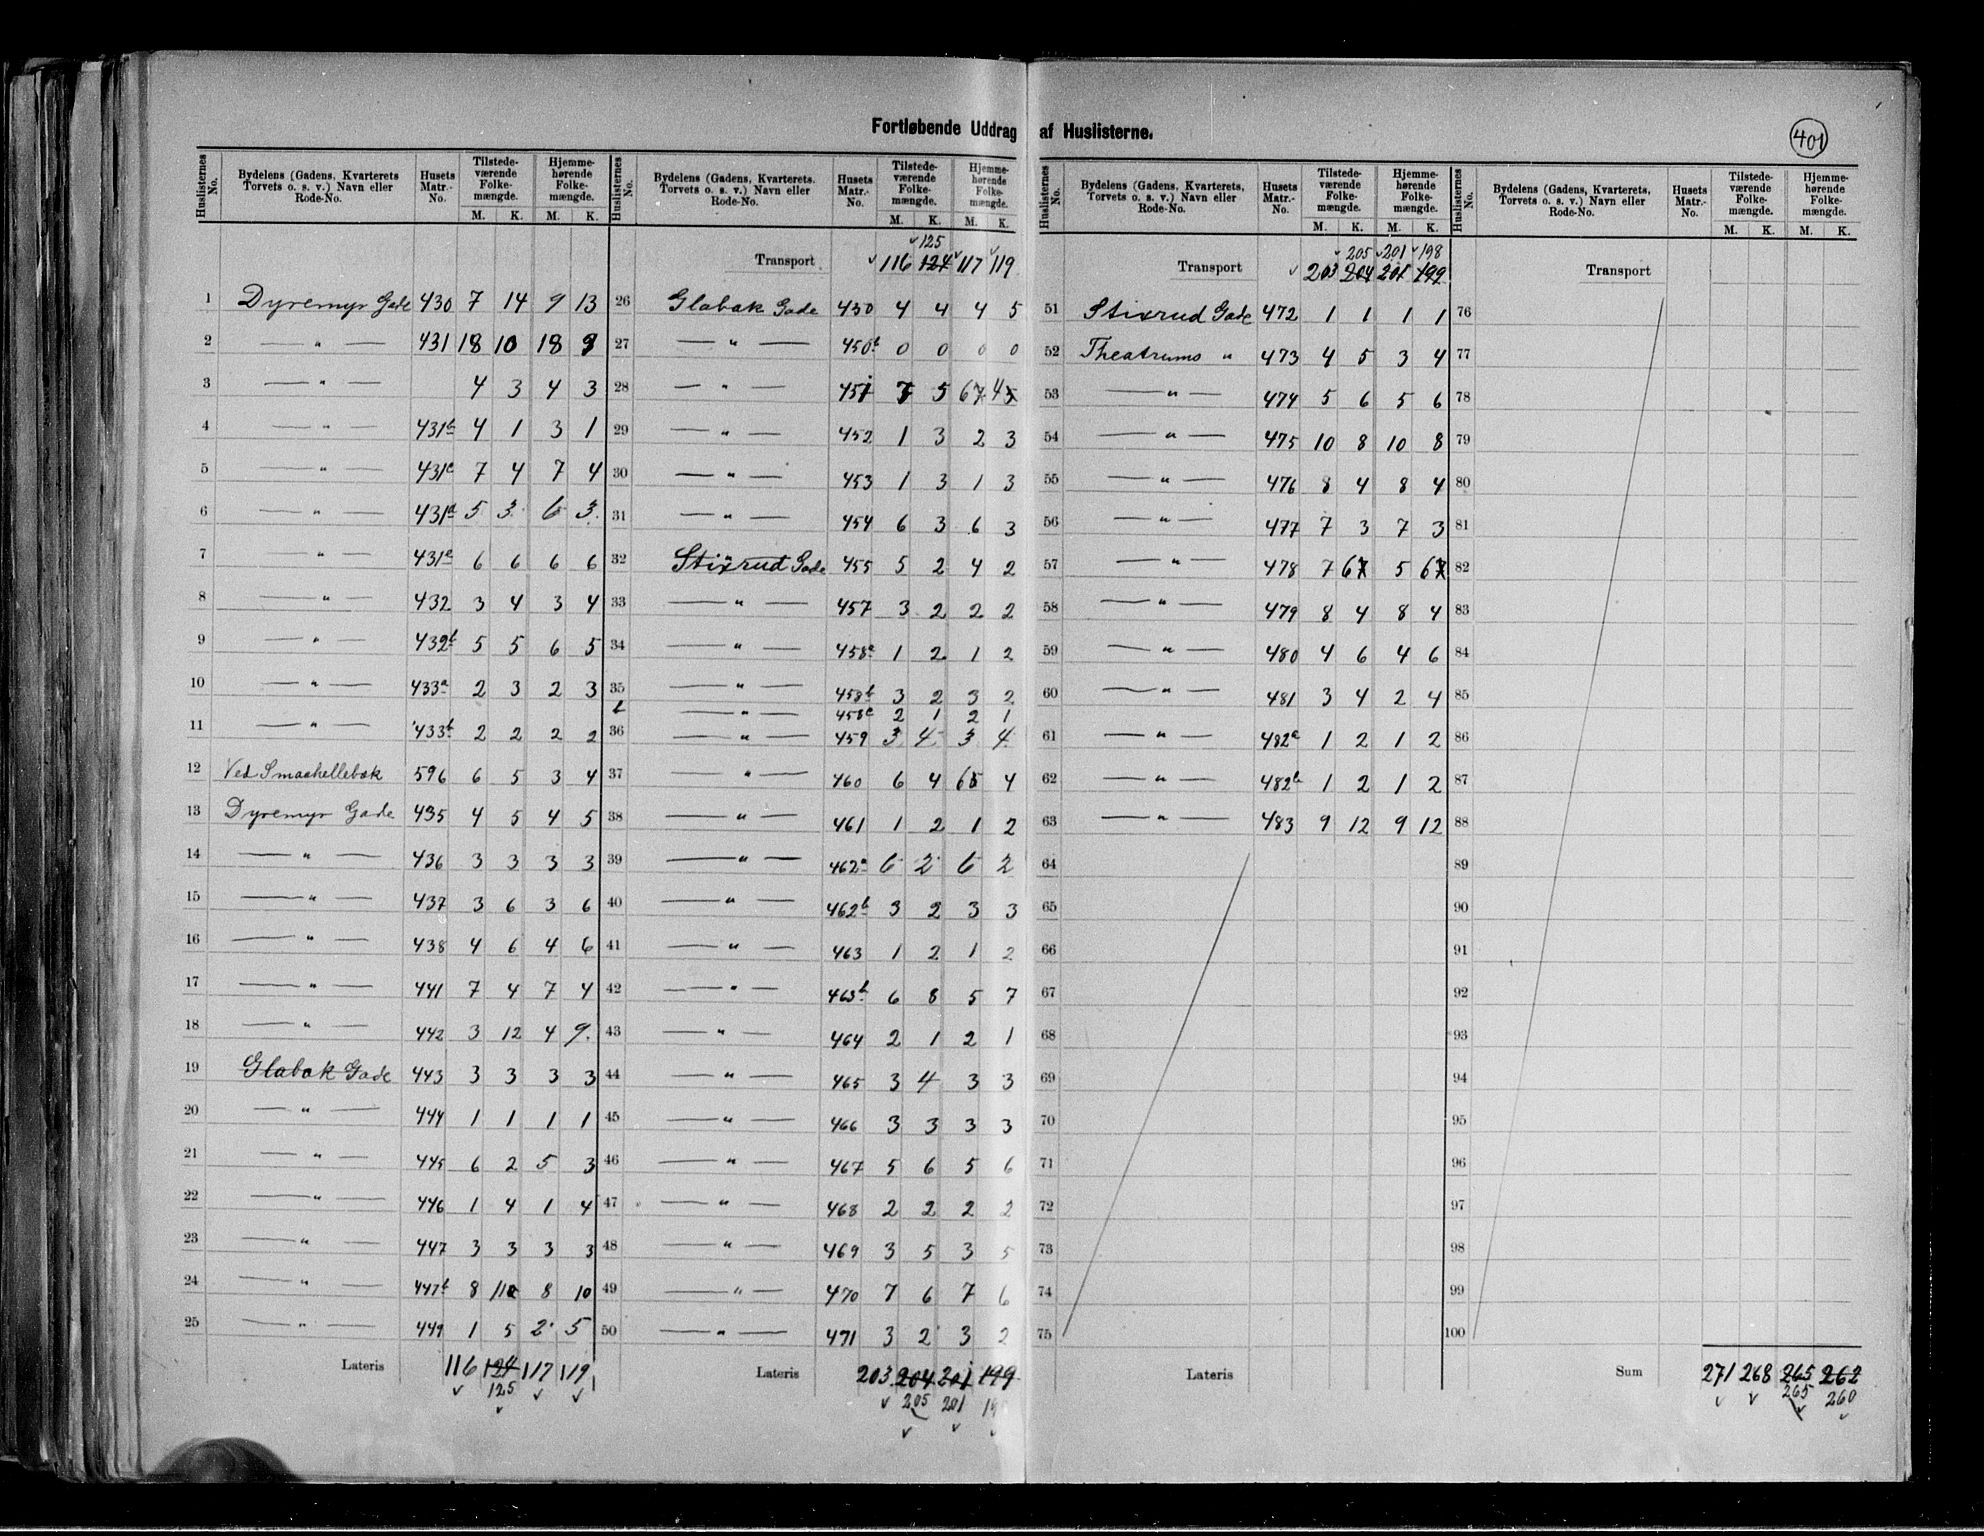 Fortløbende Uddrag af Huslisterne.
401
Huslisternes No. | Bydelens (Gadens, Kvarterets Torvets o. s. v.) Navn eller Rode-No. | Husets Matr.-No. | Tilstede-værende Folke-mængde. M. K. | Hjemme-hørende Folke-mængde. M. K.
1 Dyremyr Gade 430 7 14 9 13
2 — " — 431 18 10 18 9
3 — " — 4 3 4 3
4 — " — 431b 4 1 3 1
5 — " — 431c 7 4 7 4
6 — " — 431d 5 3 6 3
7 — " — 431e 6 6 6 6
8 — " — 432 3 4 3 4
9 — " — 432b 5 5 6 5
10 — " — 433a 2 3 2 3
11 — " — 433b 2 2 2 2
12 Ved Smaahellebæk 596 6 5 3 4
13 Dyremyr Gade 435 4 5 4 5
14 — " — 436 3 3 3 3
15 — " — 437 3 6 3 6
16 — " — 438 4 6 4 6
17 — " — 441 7 4 7 4
18 — " — 442 3 12 4 9
19 Glabak Gade 443 3 3 3 3
20 — " — 444 1 1 1 1
21 — " — 445 6 2 5 3
22 — " — 446 1 4 1 4
23 — " — 447 3 3 3 3
24 — " — 447b 8 11 8 10
25 — " — 449 1 5 2 5
Lateris 116 124 117 119
125
Huslisternes No. | Bydelens (Gadens, Kvarterets. Torvets o. s. v.) Navn eller Rode-No. | Husets Matr.-No. | Tilstede-værende Folke-mængde. M. K. | Hjemme-hørende Folke-mængde. M. K.
125
Transport 116 124 117 119
26 Glabak Gade 450 4 4 4 5
27 — " — 450b 0 0 0 0
28 — " — 451 7 5 67 45
29 — " — 452 1 3 2 3
30 — " — 453 1 3 1 3
31 — " — 454 6 3 6 3
32 Stixrud Gade 455 5 2 4 2
33 — " — 457 3 2 2 2
34 — " — 458a 1 2 1 2
35 — " — 458b 3 2 3 2
b — " — 458c 2 1 2 1
36 — " — 459 3 4 3 4
37 — " — 460 6 4 65 4
38 — " — 461 1 2 1 2
39 — " — 462a 6 2 6 2
40 — " — 462b 3 2 3 3
41 — " — 463 1 2 1 2
42 — " — 463b 6 8 5 7
43 — " — 464 2 1 2 1
44 — " — 465 3 4 3 3
45 — " — 466 3 3 3 3
46 — " — 467 5 6 5 6
47 — " — 468 2 2 2 2
48 — " — 469 3 5 3 5
49 — " — 470 7 6 7 6
50 — " — 471 3 2 3 2
Lateris 203 204 201 199
205 201
Huslisternes No. | Bydelens (Gadens, Kvarterets, Torvets o. s. v.) Navn eller Rode-No. | Husets Matr.-No. | Tilstede-værende Folke-mængde. M. K. | Hjemme-hørende Folke-mængde. M. K.
205 201 198
Transport 203 204 201 199
51 Stixrud Gade 472 1 1 1 1
52 Theatrums " 473 4 5 3 4
53 — " — 474 5 6 5 6
54 — " — 475 10 8 10 8
55 — " — 476 8 4 8 4
56 — " — 477 7 3 7 3
57 — " — 478 7 67 5 67
58 — " — 479 8 4 8 4
59 — " — 480 4 6 4 6
60 — " — 481 3 4 2 4
61 — " — 482a 1 2 1 2
62 — " — 482b 1 2 1 2
63 — " — 483 9 12 9 12
64
65
66
67
68
69
70
71
72
73
74
75
Lateris
Huslisternes No. | Bydelens (Gadens, Kvarterets, Torvets o. s. v.) Navn eller Rode-No. | Husets Matr.-No. | Tilstede-værende Folke-mængde. M. K. | Hjemme-hørende Folke-mængde. M. K.
Transport
76
77
78
79
80
81
82
83
84
85
86
87
88
89
90
91
92
93
94
95
96
97
98
99
100
Sum 271 268 265 262
265 260